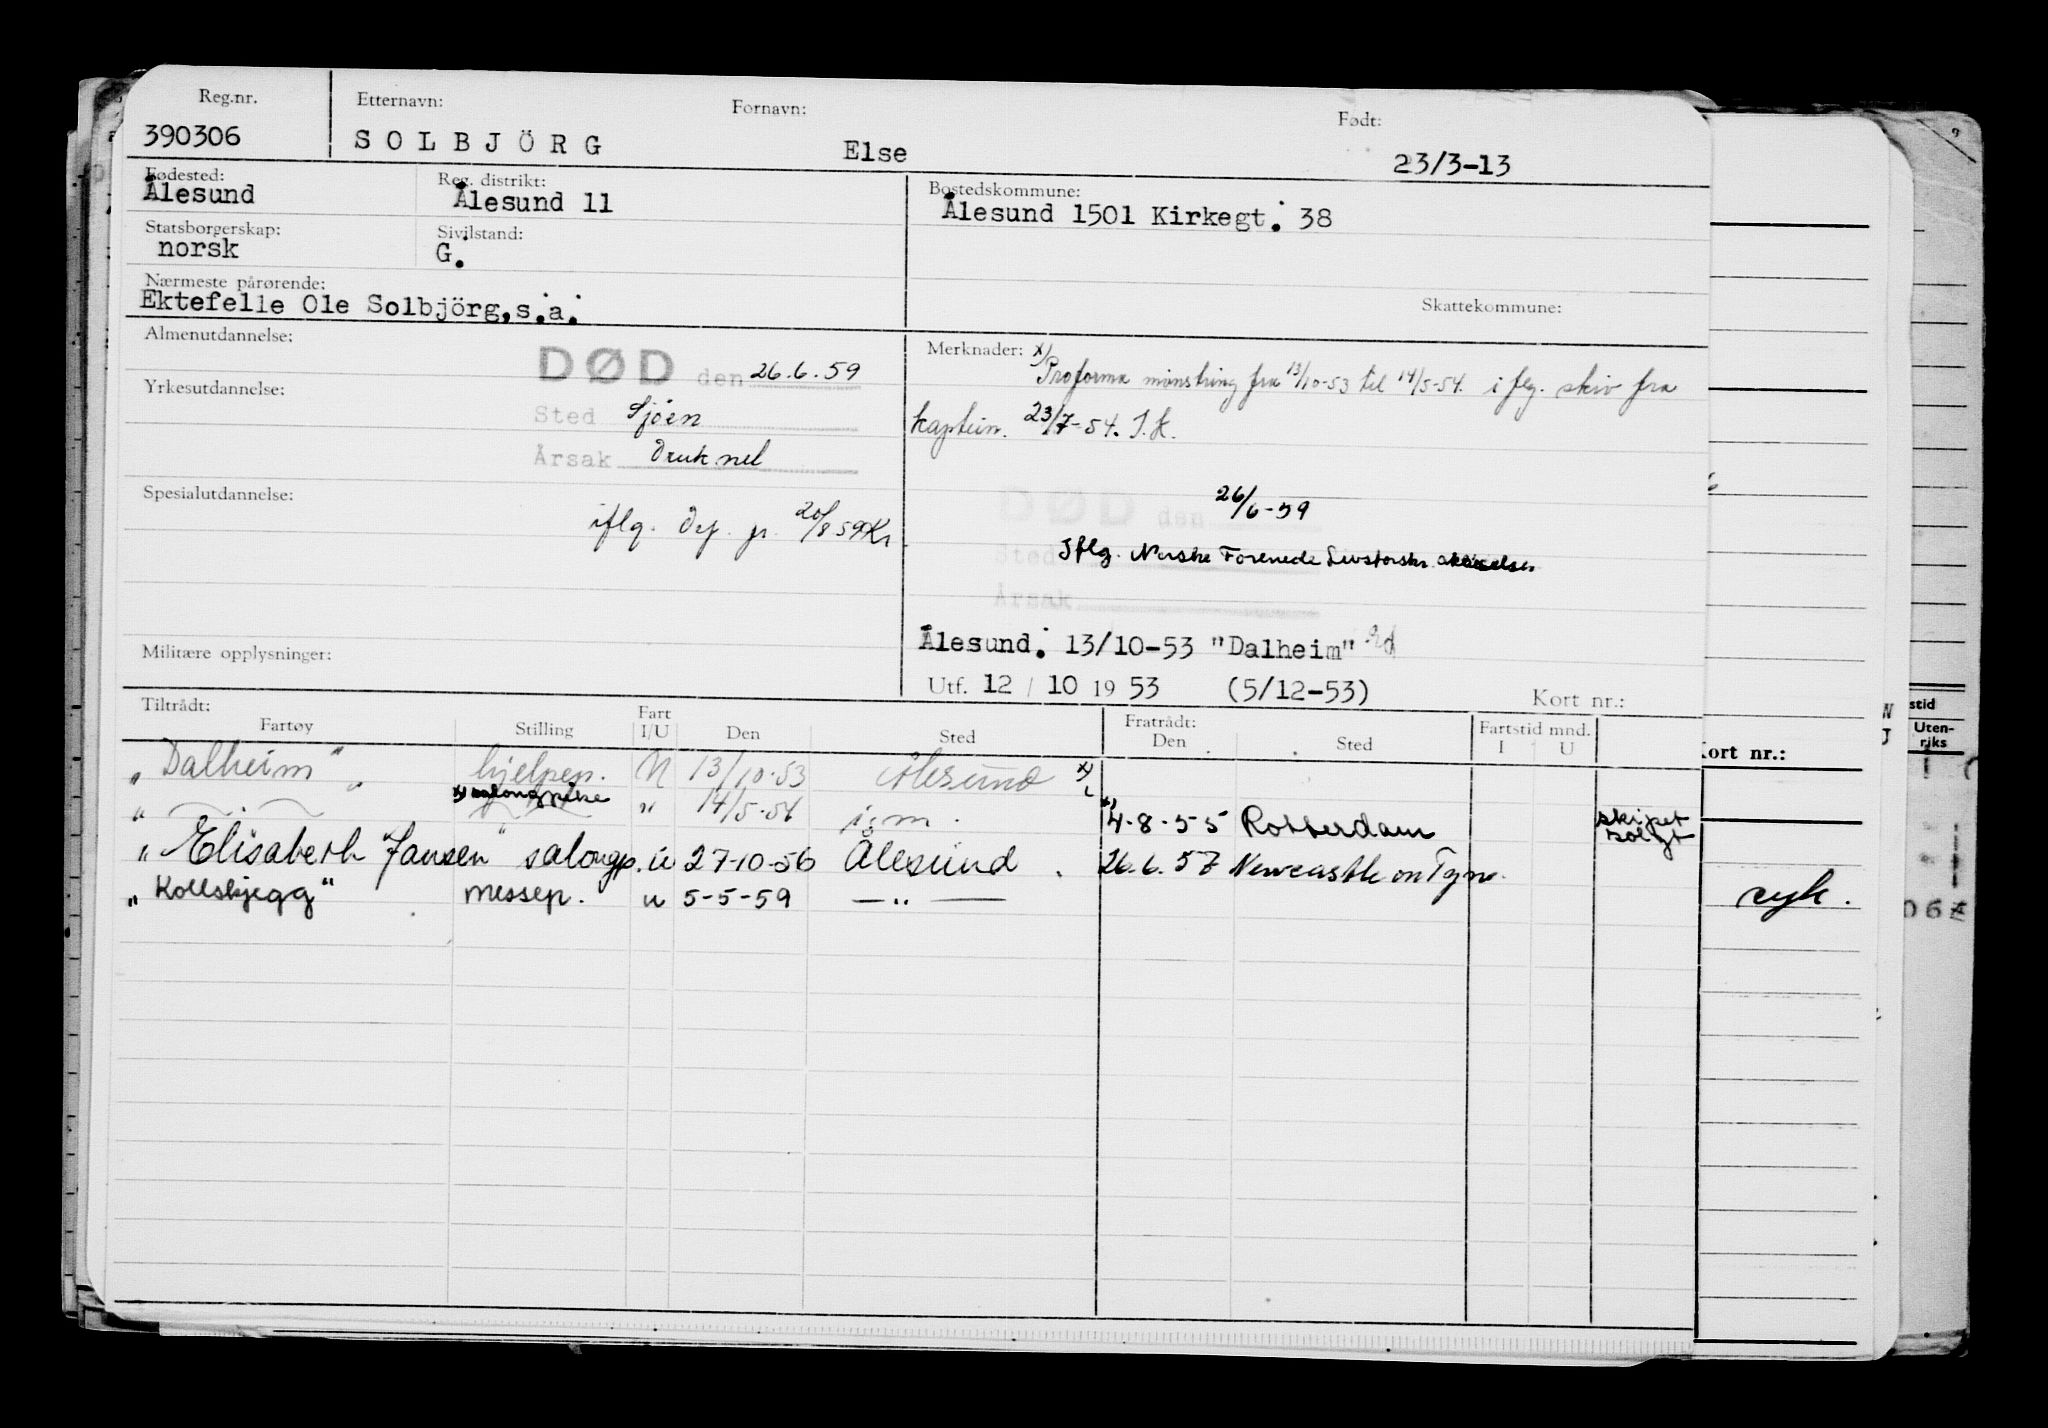 Reg.nr. Etternavn: Fornavn: Født:
390306 SOLBJÖRG Else 23/3-13
Fødested: Reg. distrikt: Bostedskommune:
Ålesund Ålesund 11 Ålesund 1501 Kirkegt. 38
Statsborgerskap: Sivilstand:
norsk G.
Nærmeste pårørende:
Ektefelle Ole Solbjörg,s.a. Skattekommune:
Almenutdannelse: Merknader: x)
DØD den 26.6.59 Proforma mønstring fra 13/10-53 til 14/5-54. iflg. skriv fra
Yrkesutdannelse:
Sted Sjøen kaptein. 23/7-54. I.K.
Årsak Druknet
Spesialutdannelse:
DØD den 26/6-59
iflg. Dep. pr. 20/8 59 Kr.
Sted Iflg. Norske Forenede Livsforsikr.
Årsak
Ålesund. 13/10-53 "Dalheim"
Militære opplysninger:
Utf. 12 / 10 19 53 (5/12-53) Kort nr.:
Tiltrådt: Fratrådt: Fartstid mnd.
Fartøy Stilling Fart I/U Den Sted Den Sted I U
"Dalheim" hjelpep. U 13/10-53 Ålesund x)
" x) salongpike " 14/5-54 i.m. 4-8-55 Rotterdam skipet solgt
"Elisabeth Jansen" salongp. u 27-10-56 Ålesund 26.6.57 Newcastle on Tyne
"Kollsbjegg" messep. u 5-5-59 — " —
stid
Uten-
riks
Kort nr.:
syk.